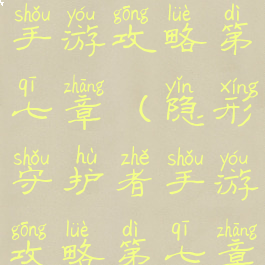 shǒu yóu gōng lüè dì
手游攻略第
qī zhāng yǐn xíng
七章（隐形
shǒu hù zhě shǒu yóu
守护者手游
gōng lüè dì qī zhāng
攻略第七章